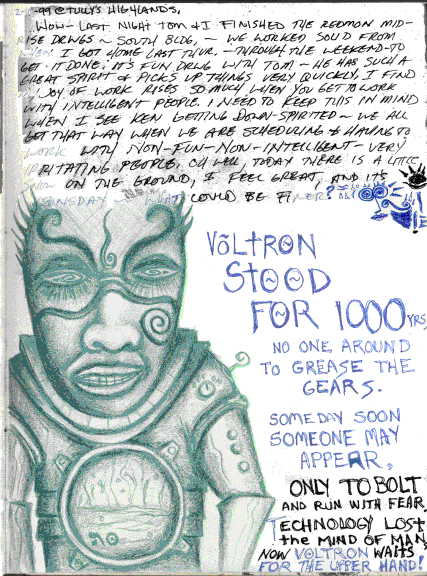 2-10-99 @ TULLY'S HIGHLANDS,
WOW- LAST NIGHT TOM & I FINISHED THE REDMON MID-
RISE DRWGS ~ SOUTH BLDG, ~ WE WORKED SOLID FROM
I GOT HOME LAST THUR. ~ THROUGH THE WEEKEND - TO
GET IT DONE; IT'S FUN DRWG WITH TOM ~ HE HAS SUCH A
GREAT SPIRIT & PICKS UP THINGS VERY QUICKLY, I FIND
JOY OF WORK RISES SO MUCH WHEN YOU GET TO WORK
WITH INTELLIGENT PEOPLE. I NEED TO KEEP THIS IN MIND
WHEN I SEE KEN GETTING DOWN-SPIRITED ~ WE ALL
GET THAT WAY WHEN WE ARE SCHEDULING & HAVING TO
WORK WITH NON-FUN-NON-INTELLIGENT - VERY
IRRITATING PEOPLE, OH WELL, TODAY THERE IS A LITTLE
SNOW ON THE GROUND, I FEEL GREAT, AND IT'S
WEDNSDAY WHAT COULD BE FINER?
VOLTRON
STOOD
FOR 1000 YRS,
NO ONE AROUND
TO GREASE THE
GEARS.
SOMEDAY SOON
SOMEONE MAY
APPEAR,
ONLY TO BOLT
AND RUN WITH FEAR
TECHNOLOGY LOST
the MIND OF MAN,
NOW VOLTRON WAITS
FOR THE UPPER HAND!